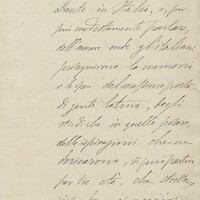 Dante in Italia, o, per
più modestamente parlare,
dell'amore onde gl'Italiani
proseguirono la memoria
e le opere del massimo poeta
di gente latina, dagli
studi che in quello posero,
dalle ispirazioni che ne
derivarono, si può partire
per tre età, che